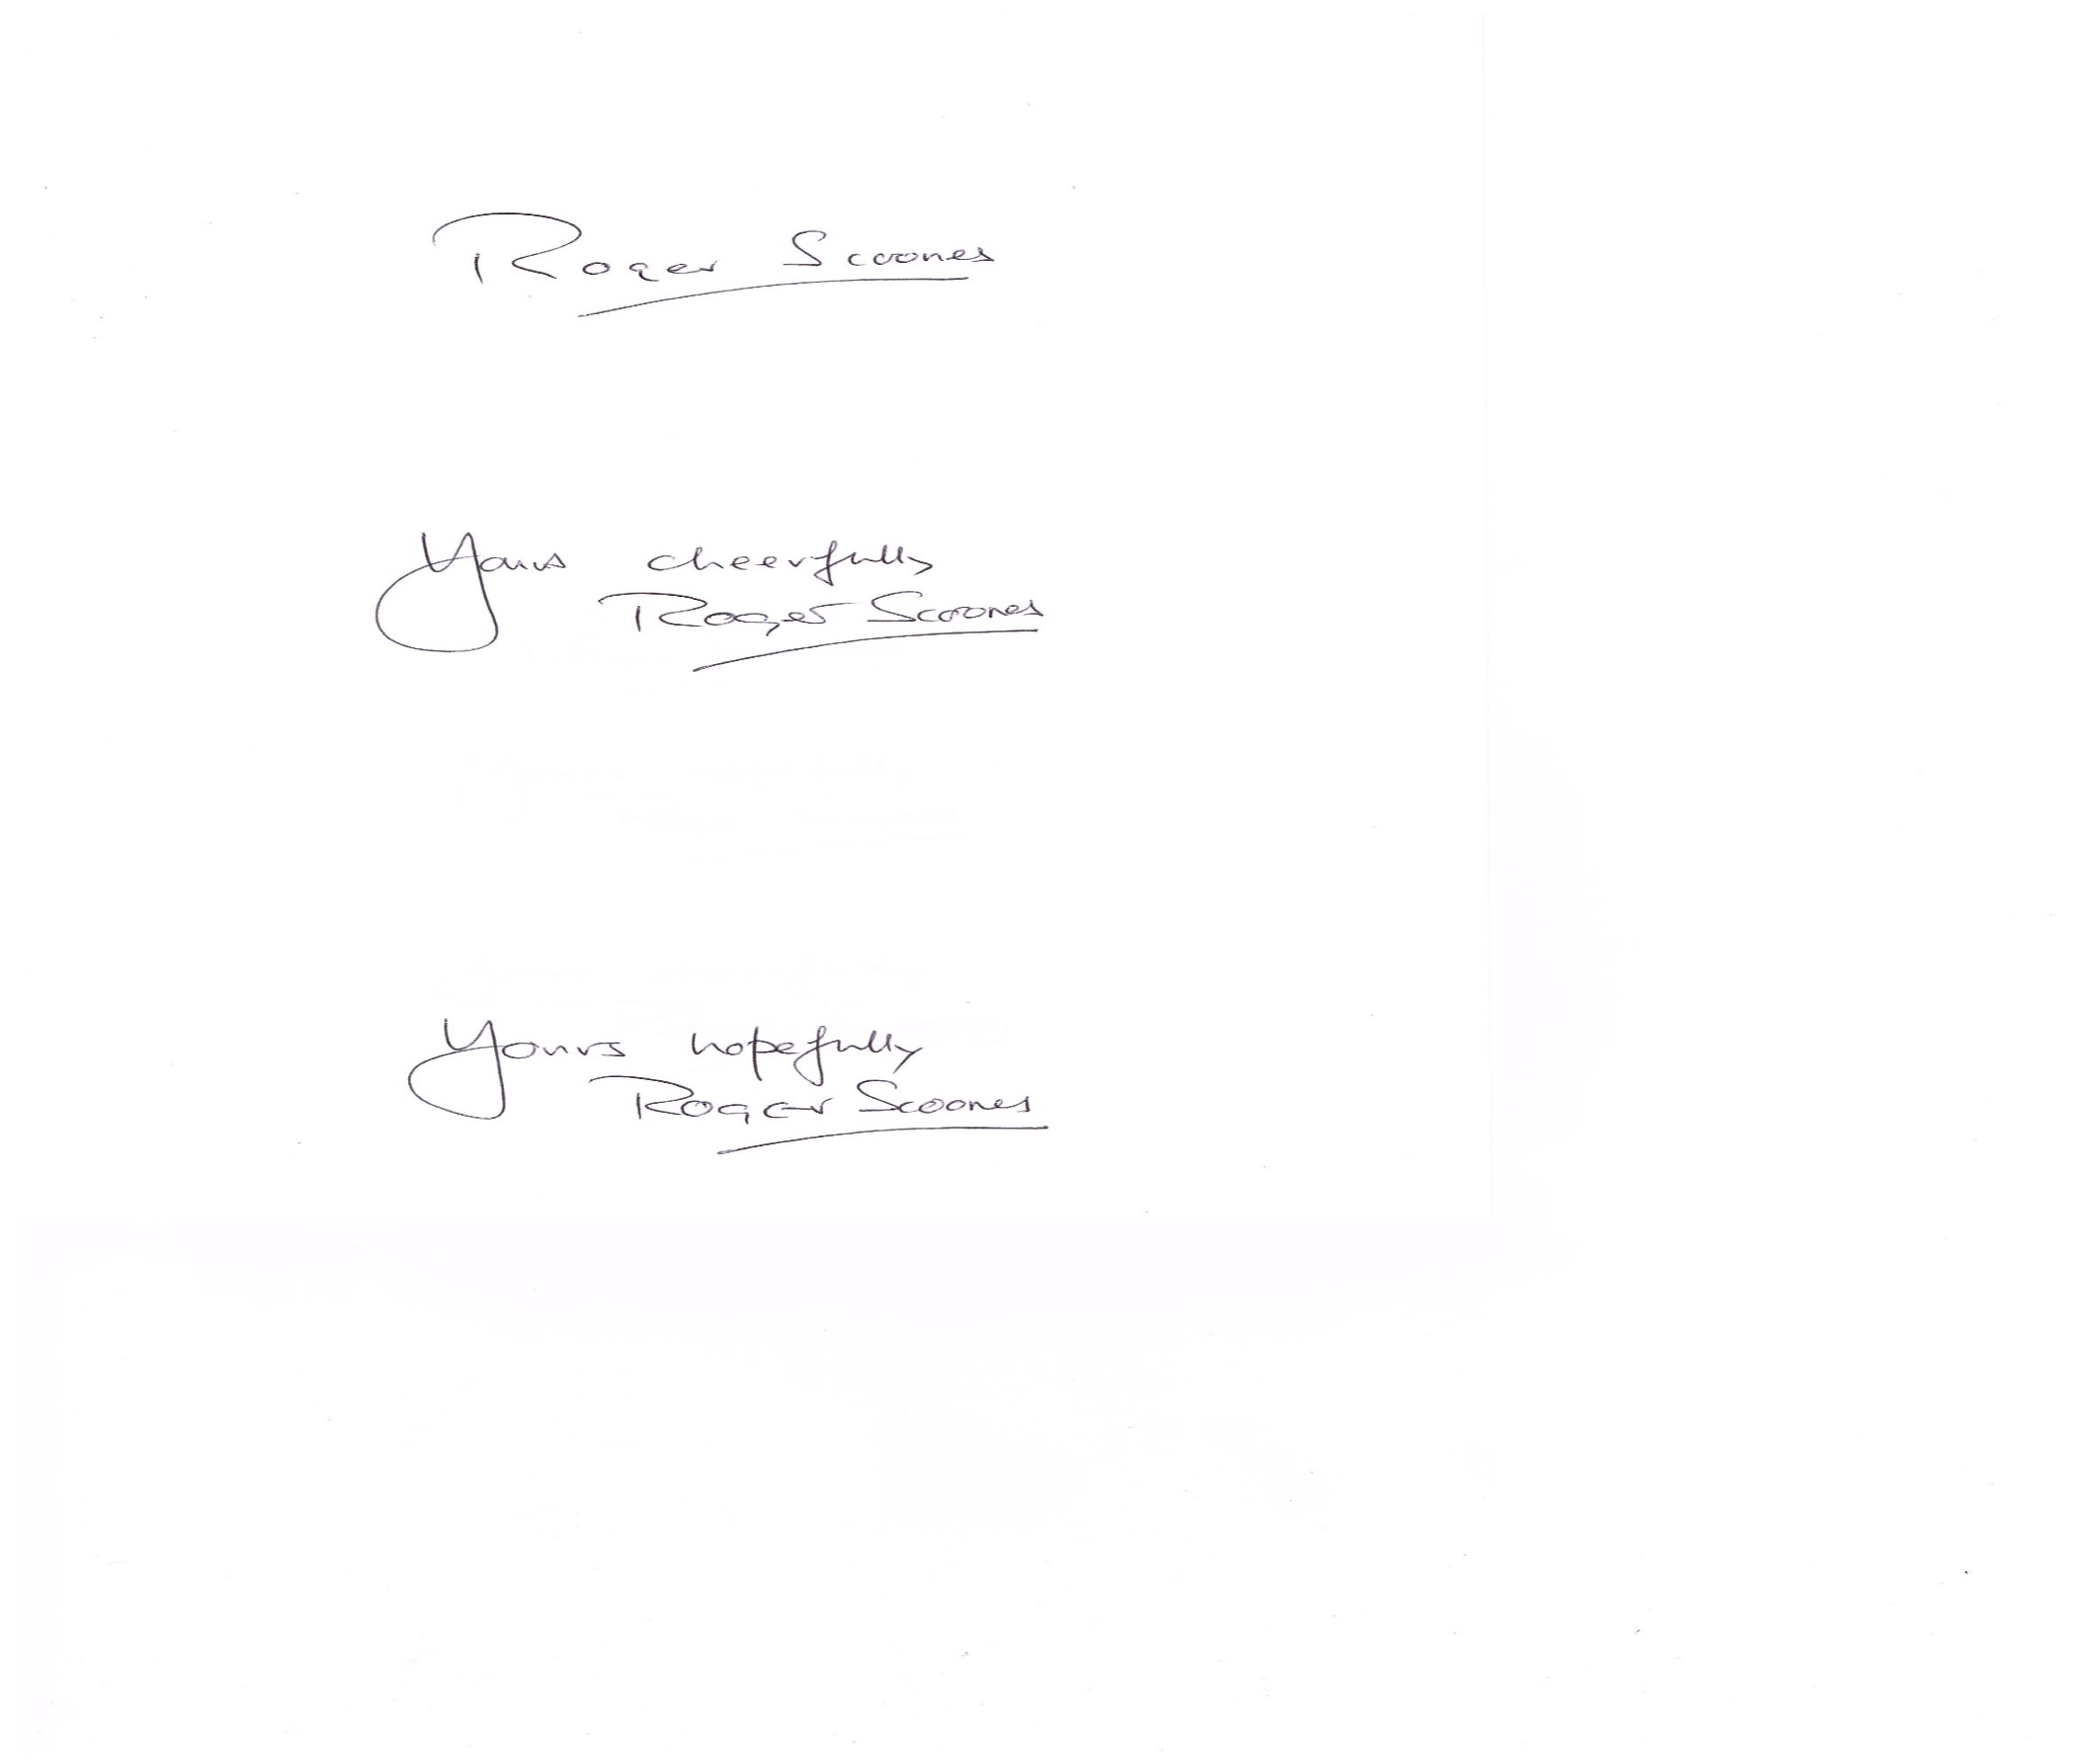 Roger Scoones
Yours cheerfully
Roger Scoones
Yours hopefully
Roger Scoones